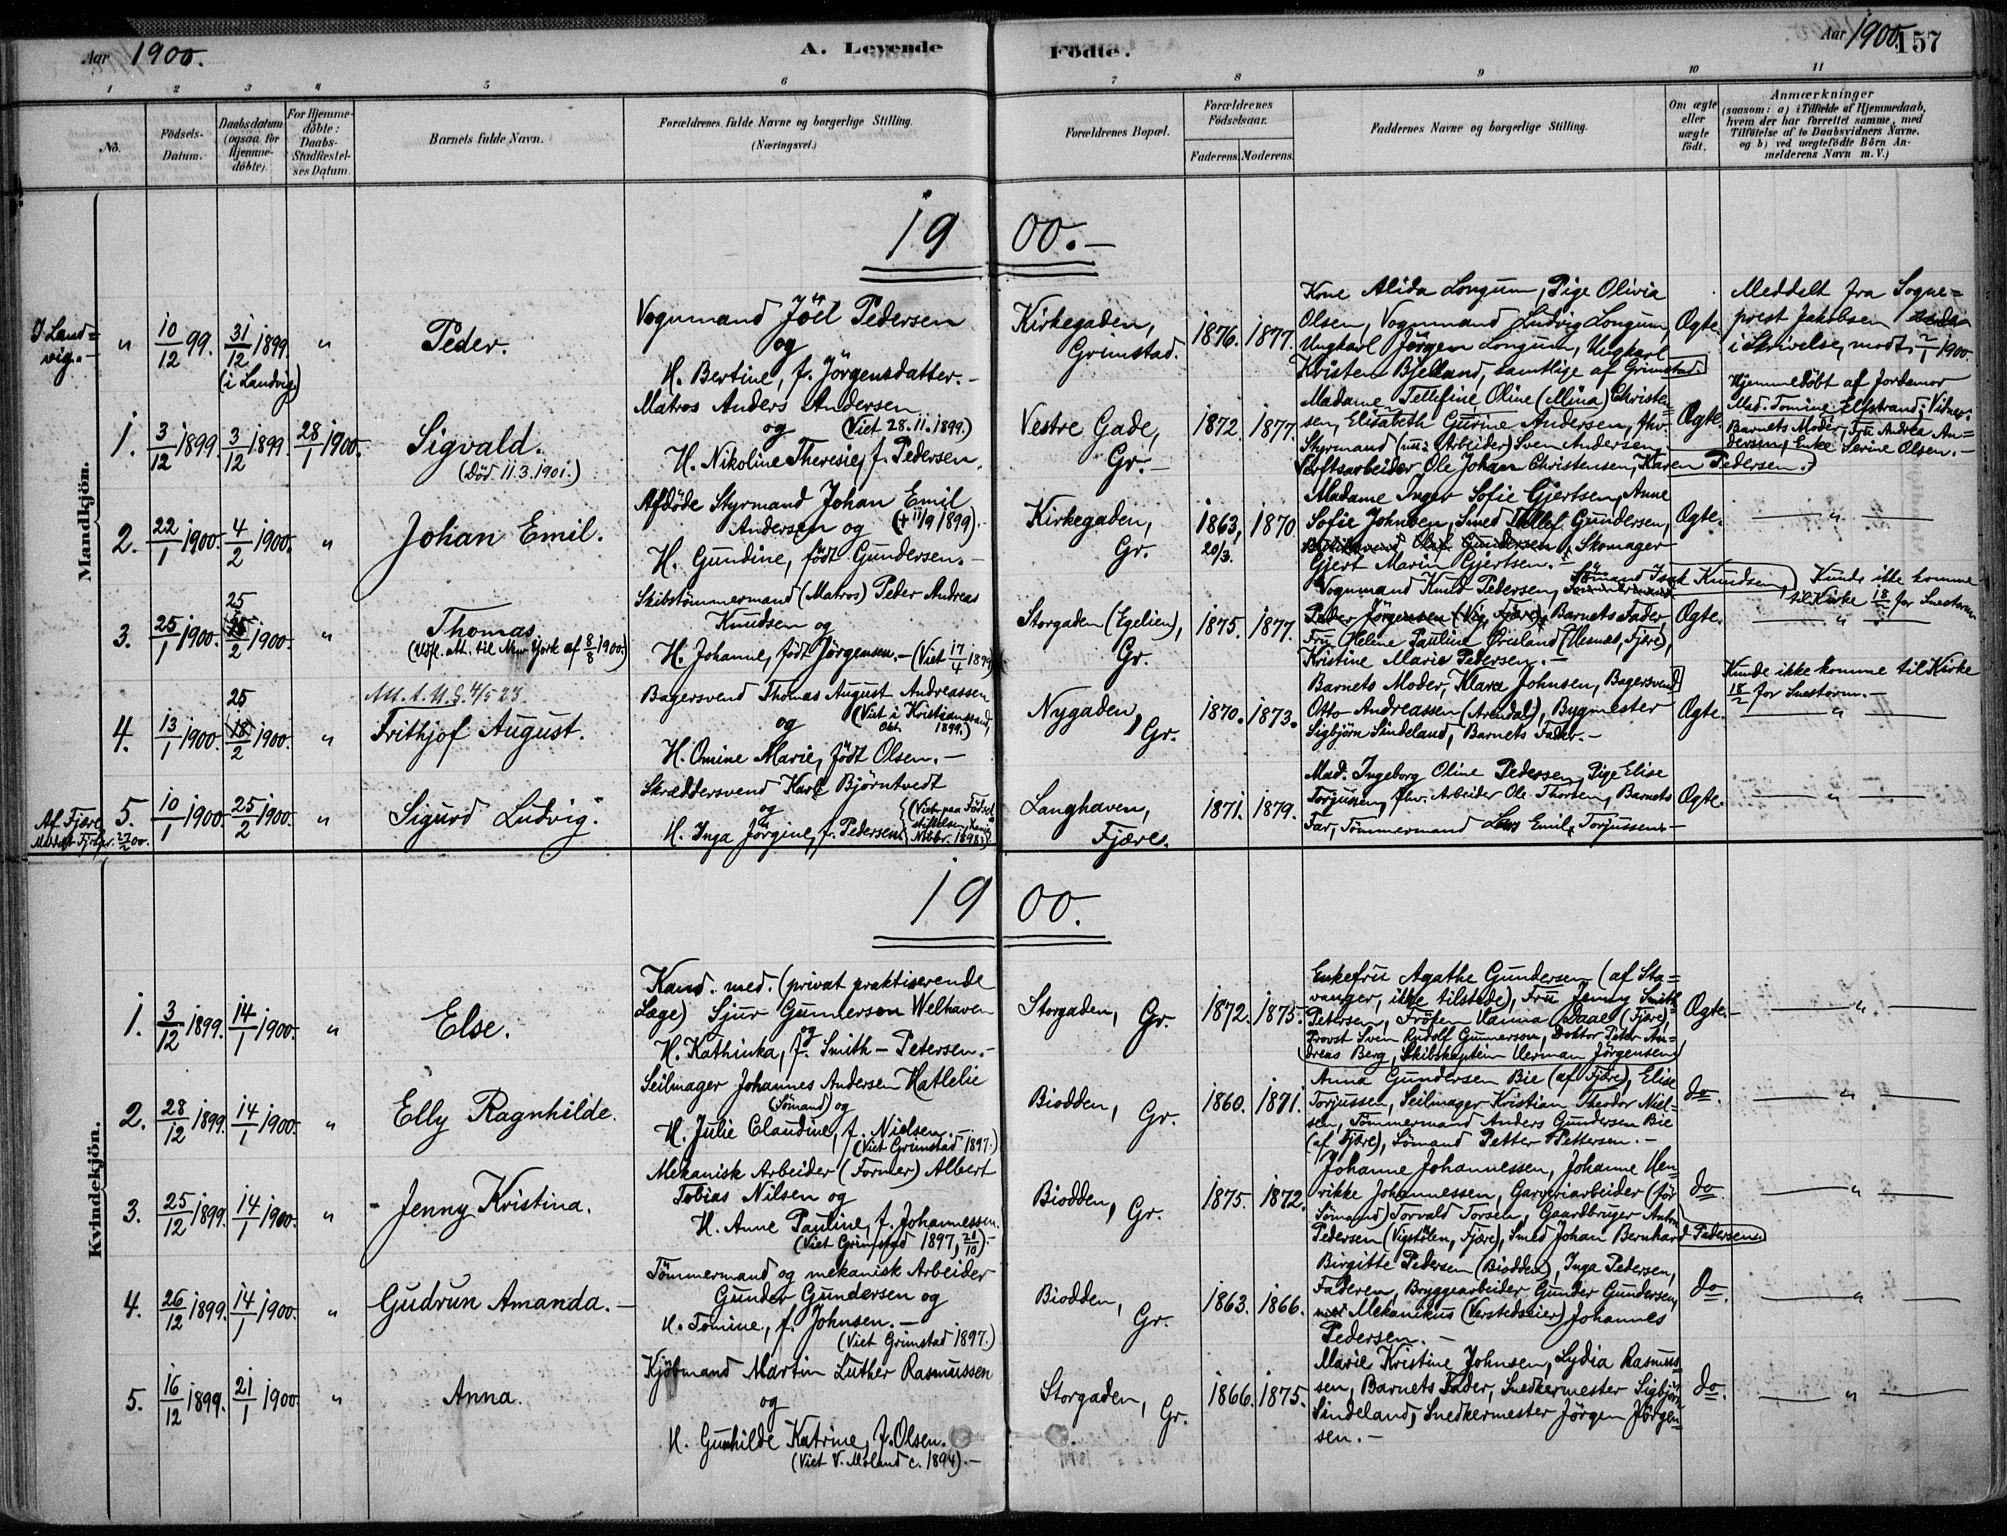 Aar 1900.
A. Levende
Födte.
Aar 1900. 157
1 2 3 4 5 6 7 8 9 10 11
No.
Födsels-
Datum.
Daabsdatum
(ogsaa for
Hjemme-
döbte).
For Hjemme-
döbte:
Daabs-
Stadfæstel-
ses Datum.
Barnets fulde Navn.
Forældrenes fulde Navne og borgerlige Stilling.
(Næringsvei.)
Forældrenes Bopæl.
Forældrenes
Födselsaar.
Faderens. Moderens.
Faddernes Navne og borgerlige Stilling.
Om ægte
eller
uægte
födt.
Anmærkninger
(saasom: a) i Tilfælde af Hjemmedaab,
hvem der har forrettet samme, med
Tilföielse af to Daabsvidners Navne.
og b) ved uægtefödte Börn An-
melderens Navn m. V.)
1900.—
Mandkjön.
I Land-
vig.—
" 10/12 99. 31/12 1899. "
(i Landvig)
Peder.
Vognmand Jöel Pedersen
og
H. Bertine, f. Jörgensdatter.—
Kirkegaden,
Grimstad.
1876. 1877.
Kone Alida Longum, Pige Olivia
Olsen, Vognmand Ludvig Longum,
Ungkarl Jörgen Longum, Ungkarl
Kristen Bjelland, samtlige af Grimstad.
Ægte.
Meddelt fra Sogne-
prest Jakobsen
i Skrivelse, modt. 2/1 1900.
1. 3/12 1899. 3/12 1899. 28/1 1900.
Sigvald.
(Död 11.3.1901.)
Matros Anders Andersen
og (Viet 28.11.1899.)
H. Nikoline Theresie, f. Pedersen.
Vestre Gade,
Gr.—
1872. 1877.
Madame Tellefine Oline (Mina) Christen-
sen, Elisabeth Gurine Andersen, fhv.
Styrmand (nu: Arbeider) Sven Andersen.
Verftsarbeider Ole Johan Christensen, Karen Pedersen.
Ægte.
Hjemmedöbt af Jordemor
Mad. Tomine Elfstrand; Vidner:
Barnets Moder, Fru Andrea An-
dersen, Enke Serine Olsen.—
2. 22/1 1900. 4/2 1900. "
Johan Emil.
Afdöde Styrmand Johan Emil
Andersen og († 11/9 1899).
H. Gundine, födt Gundersen.—
Kirkegaden,
Gr.
1863, 1870
20/3.
Madame Inger Sofie Gjertsen, Anne
Sofie Johnsen, Smed Tellef Gundersen,
Olaf Gundersen, Skomager
Gjert Marin Gjertsen.—
Ægte.
— " —
3. 25/1 1900. 25 18/2 1900. "
Thomas
(Udfl. Att. til New York af 8/8 1900.)
Skibstömmermand (Matros) Peder Andreas
Knudsen og
H. Johanne, födt Jörgensen.— (Viet 17/4 1899)
Storgaden (Egelien),
Gr.
1875. 1877.
Vognmand Knud Pedersen, Sömand Isak Knudsen,
Peder Jörgensen (Vig, Fjære), Barnets Fader
Fru Helene Pauline Grisland (Hesnæs, Fjære),
Kristine Marie Pedersen.—
Ægte.
Kunde ikke komme
til Kirke 18/2 for Snestorm.
— " —
4. 13/1 1900. 25 18/2 1900. "
Att. t. U.S. 4/5 23
Frithjof August.
Bagersvend Thomas August Andreassen
og (Viet i Kristianssand,
Okt. 1899.)
H. Omine Marie, födt Olsen.—
Nygaden, Gr.
1870. 1873.
Barnets Moder, Klara Johnsen, Bagersvend
Otto Andreassen (Arendal), Bygmester
Sigbjörn Sindeland, Barnets Fader.—
Ægte.
Kunde ikke komme til Kirke
18/2 for Snestorm.—
— " —
Af Fjære
27/2 00.
5. 10/1 1900. 25/2 1900. "
Sigurd Ludvig.
Skræddersvend Karl Björntvedt
og
H. Inga Jörgine, f. Pedersen.
(Viet paa Födsel-
stiftelsen,
Nobbr. 1898.)
Langhaven,
Fjære.
1871. 1879.
Mad. Ingeborg Oline Pedersen, Pige Elise
Torjusen, fhv. Arbeider Ole Thorsen, Barnets
Far, Tömmermand Lars Emil Torjussen—
Ægte.
— " —
1900.
Kvindekjön.
1. 3/12 1899. 14/1 1900. "
Else.
Kand. med. (privat praktiserende
Læge) Sjur Gunnerson Welhaven
og
H. Kathinka, f. Smith-Petersen.—
Storgaden, Gr.
1872. 1875.
Enkefru Agathe Gundersen (af Sta-
vanger, ikke tilstede), Fru Jenny Smith
Petersen, Fröken Hanna Daae (Fjære),
Provst Sven Rudolf Gunnerson, Doktor Peter An-
dreas Berg, Skibskaptein Herman Jörgensen
Ægte.—
— " —
2. 28/12 1899. 14/1 1900. "
Elly Ragnhilde.
Seilmager Johannes Andersen Hatlelie
(Sömand) og
H. Julie Claudine, f. Nielsen.—
(Viet Grimstad 1897.)
Biodden, Gr.
1860. 1871.
Anna Gundersen Bie (af Fjære), Elise
Torjussen, Seilmager Kristian Theodor Niel-
sen, Tömmermand Anders Gundersen Bie
(af Fjære), Sömand Petter Pettersen.—
do.
— " —
3. 25/12 1899. 14/1 1900. "
Jenny Kristina.
Mekanisk Arbeider (Former) Albert
Tobias Nilsen og
H. Anne Pauline, f. Johannessen.
(Viet Grimstad 1897, 21/10)—
Biodden, Gr.
1875. 1872.
Johanne Johannessen, Johanne Hen-
rikke Johannessen, Garveriarbeider (för
Sömand) Torvald Torsen, Gaardbruger Anton
Pedersen (Vigstölen, Fjære), Smed Johan Bernhard Pedersen.
do.
— " —
4. 26/12 1899. 14/1 1900. "
Gudrun Amanda.—
Tömmermand og mekanisk Arbeider
Gunder Gundersen og
H. Tomine, f. Johnsen.—
(Viet Grimstad 1897.)
Biodden, Gr.
1863. 1866.
Birgitte Pedersen (Biodden), Inga Pedersen,
Faderen, Bryggearbeider Gunder Gundersen,
Mekanikus (Verstedseier) Johannes
Pedersen.—
do.
— " —
5. 16/12 1899. 21/1 1900. "
Anna.
Kjöbmand Martin Luther Rasmussen
og
H. Gunhilde Katrine, f. Olsen.
(Viet V. Moland c. 1894).—
Storgaden, Gr.
1866. 1875.
Marie Kristine Johnsen, Lydia Rasmus-
sen, Barnets Fader, Snedkermester Sigbjörn
Sindeland, Snedkermester Jörgen Jörgen-
sen.—
do.
— " —